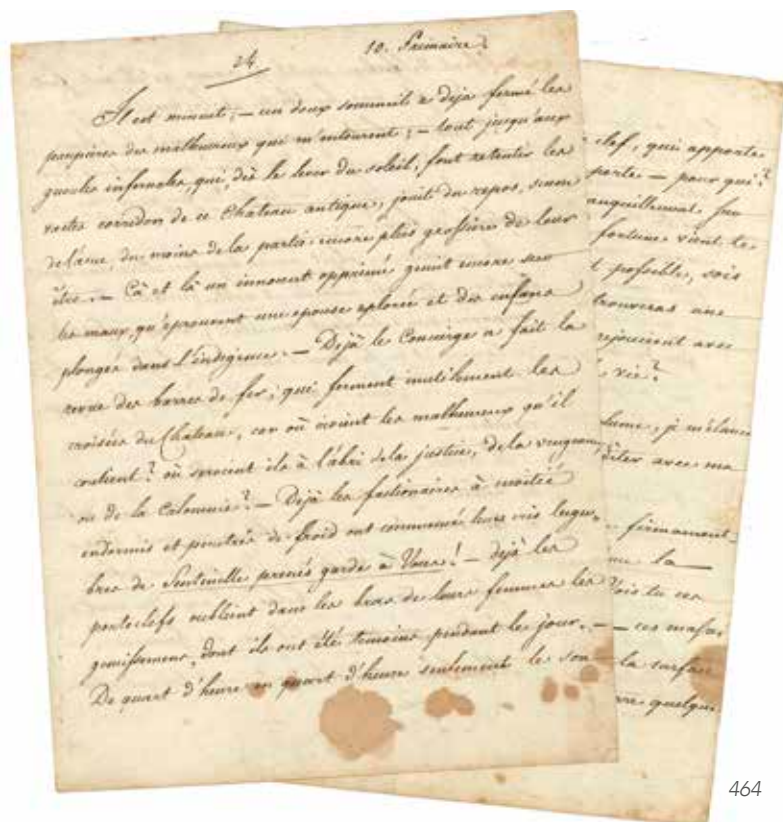 24.
10. Frimaire.
Il est minuit; — un doux sommeil a deja fermé les
paupieres des malheureux qui m'entourent; — tout jusqu'aux
gueules infernales, qui, dès le lever du soleil, font retentir les
vastes corridors de ce Chateau antique, jouit du repos, sinon
de l'ame, du moins de la partie encore plus grossiere de leur
être. — Cà et là un innocent opprimé gemit encore sur
les maux, qu'eprouvent une epouse eplorée et des enfans
plongés dans l'indigence. — Dejà le Concierge a fait la
revue des barres de fer, qui ferment inutilement les
croisées du Chateau, car où iroient les malheureux qu'il
contient? où seroient ils à l'abri de la justice, de la vengeance
ou de la Calomnie? — Dejà les factionaires à moitié
endormis et penetrés de froid ont commencé leurs cris lugu-
bres de Sentinelle prenés garde à Vous! — dejà les
porteclefs oublient dans les bras de leurs femmes les
gemissemens, dont ils ont été temoins pendant le jour. —
De quart d'heure en quart d'heure seulement le son
clef, qui apporte
porte — pour qui?
anquillement
fortune vient te
possible, sois
trouveras une
rejouiront avec
vie?
lume, je m'élance
diter avec ma
firmament
la
Vois tu ces
— ces masses
la surface
rre quelque
464